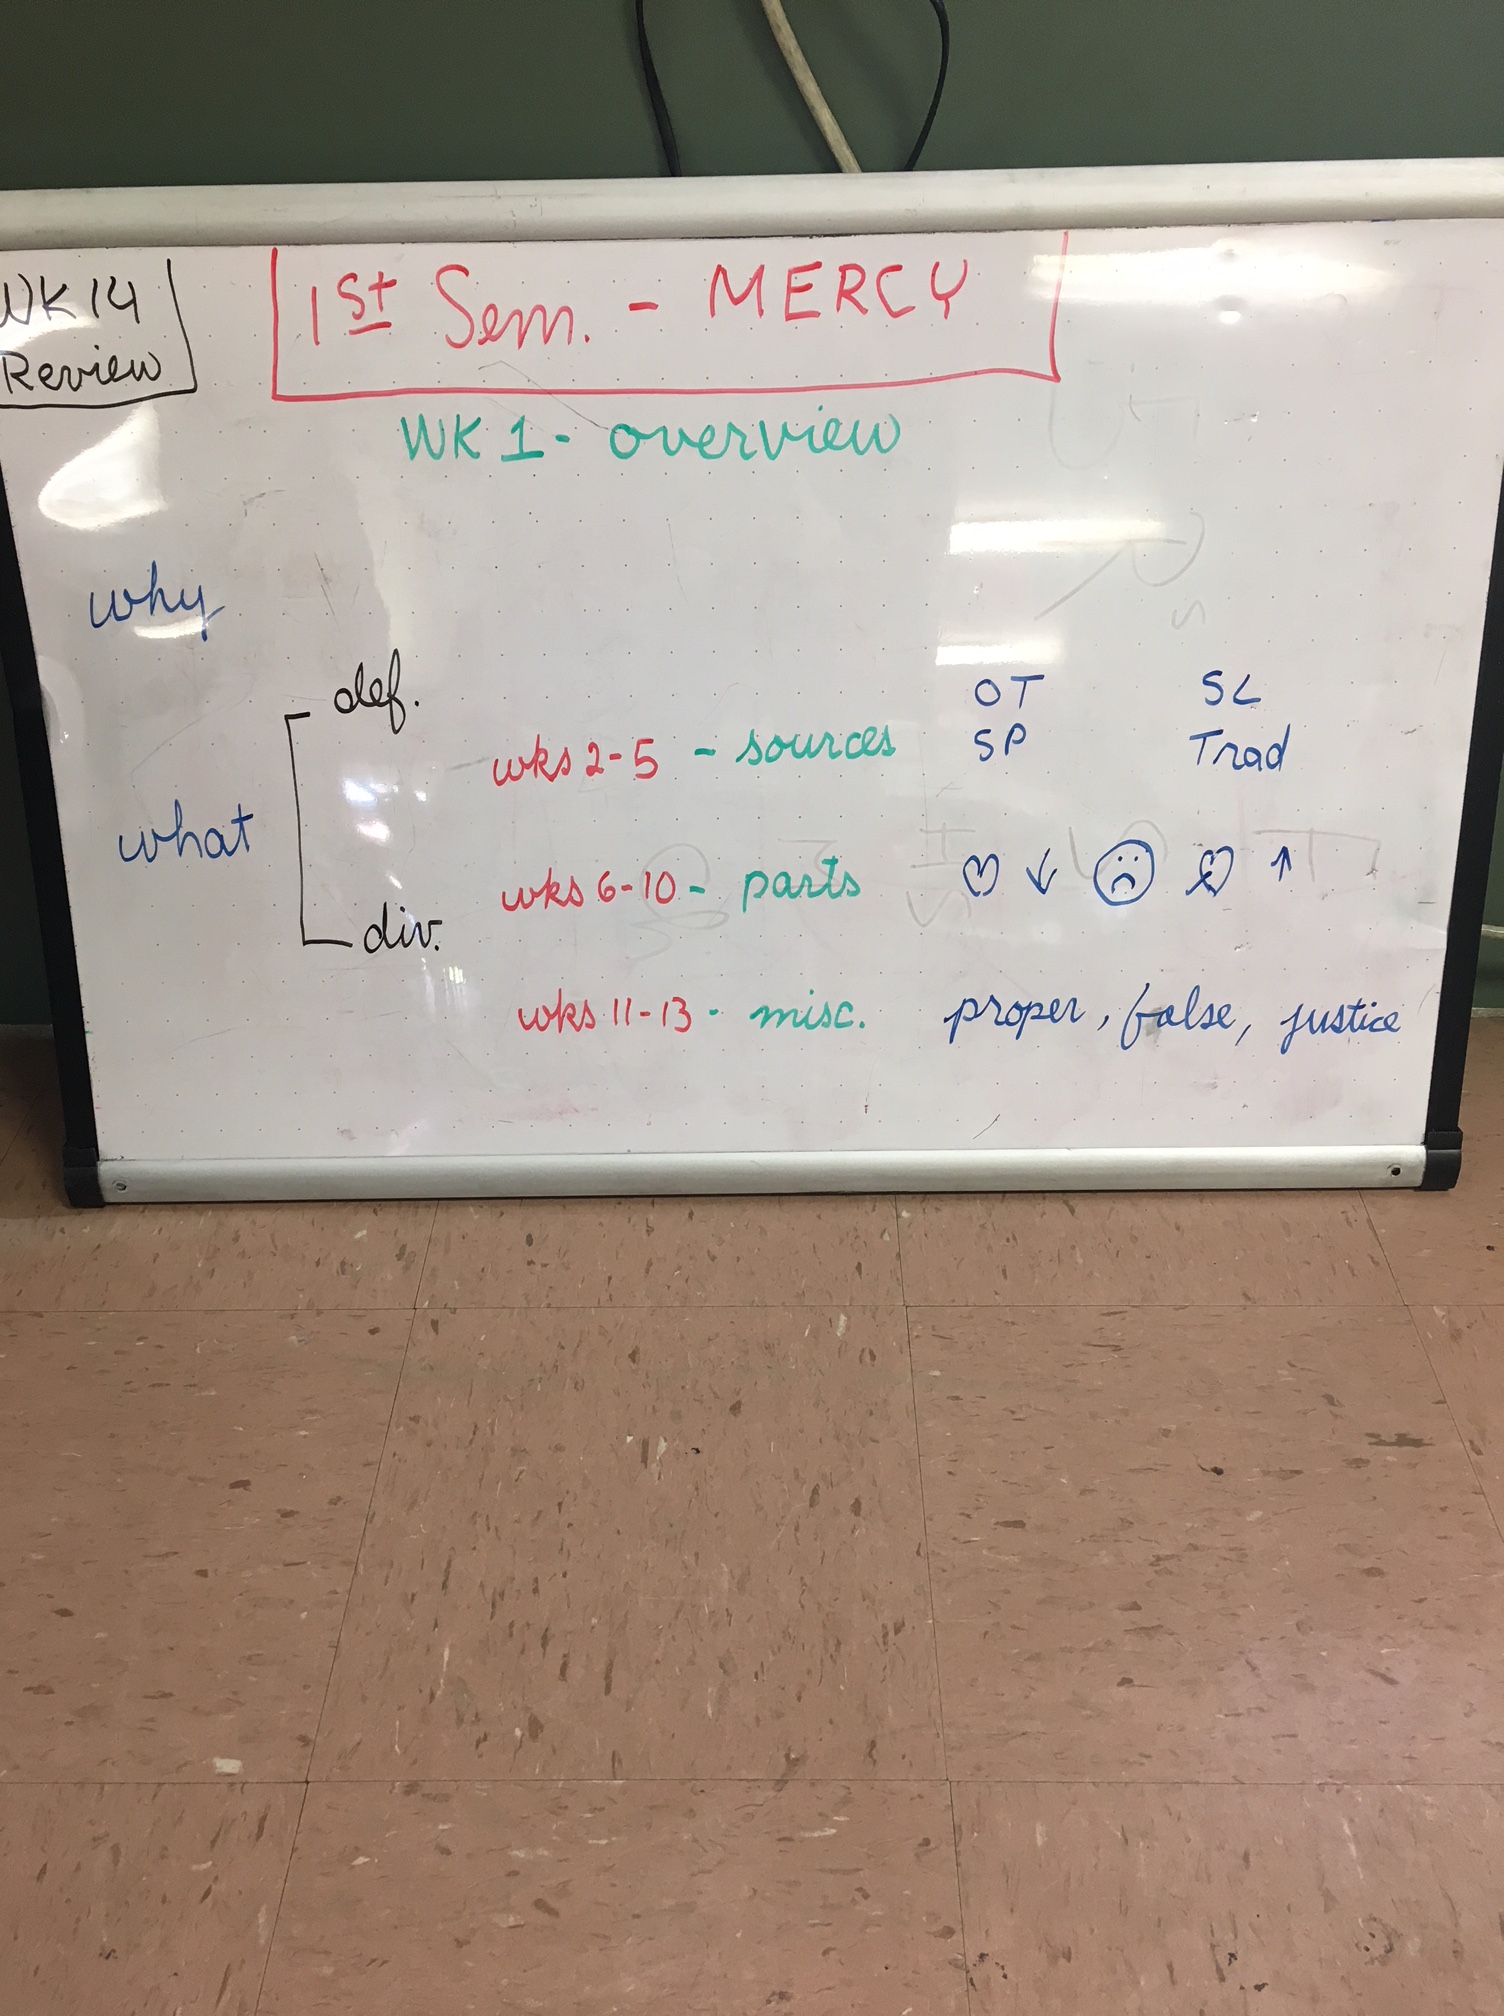 WK 14
Review
1st Sem. - MERCY
WK 1 - overview
why
what
def.
div.
wks 2-5 - sources OT SL
SP Trad
wks 6-10 - parts ♡ ↓ ☹ ↑
wks 11-13 - misc. proper, false, justice